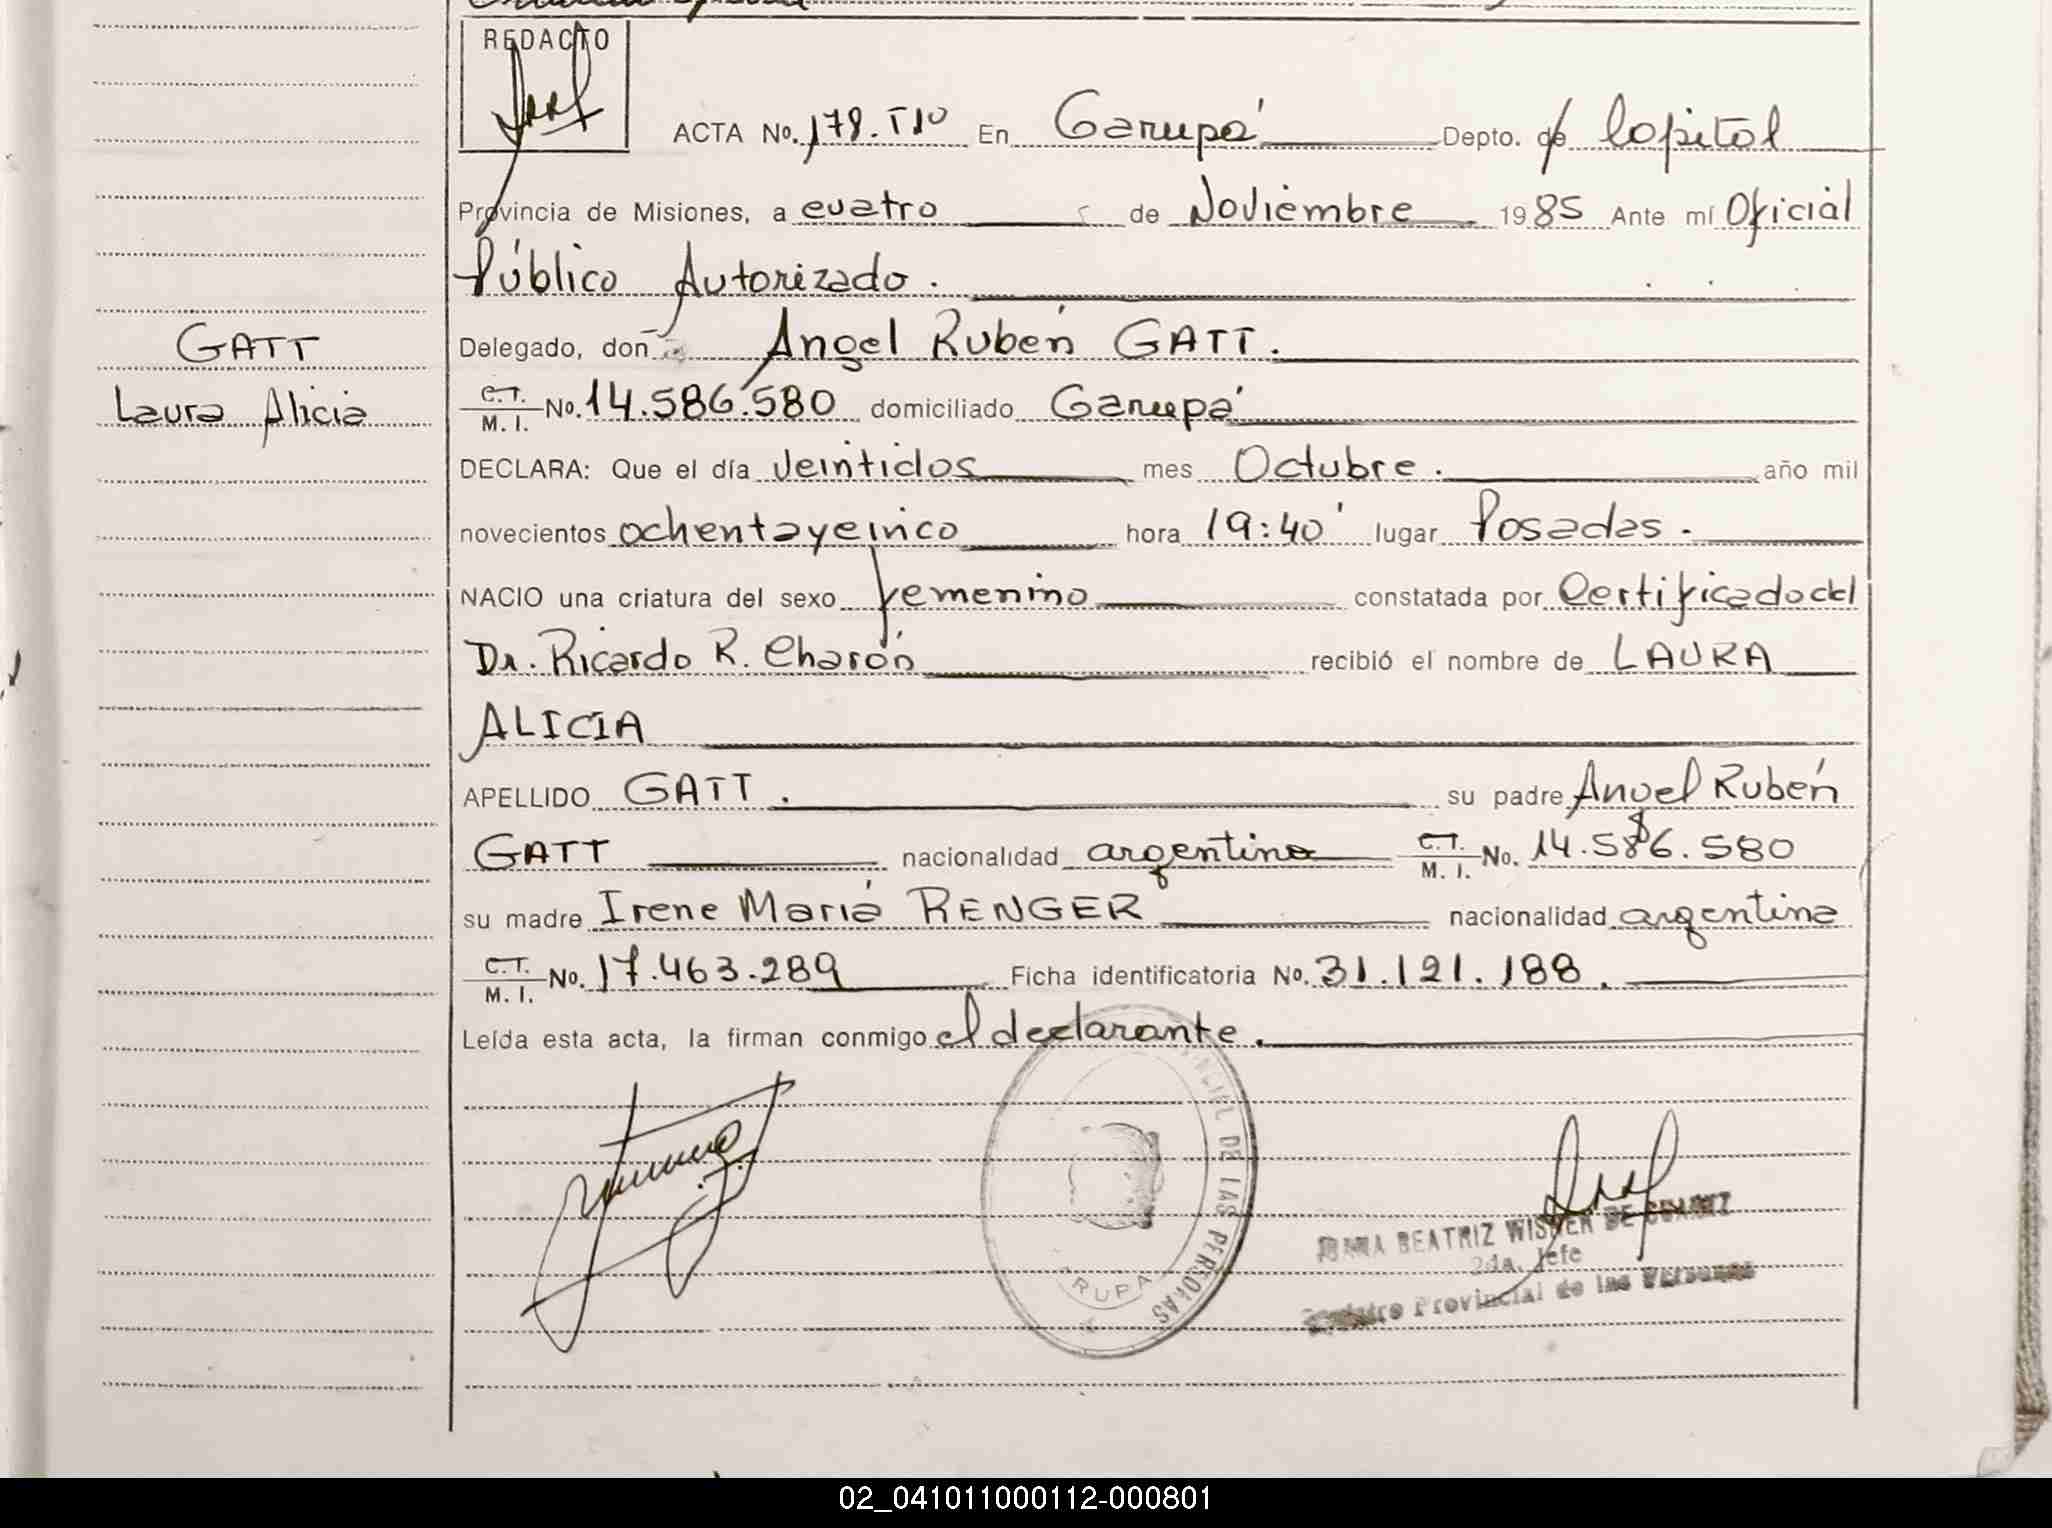 REDACTO
ACTA No. 178. TIº En Garupá Depto. de Capital
Provincia de Misiones, a cuatro de Noviembre 1985 Ante mí Oficial
Público Autorizado.
GATT
Delegado, don Angel Rubén GATT.
Laura Alicia
C.T. / M. I. No. 14.586.580 domiciliado Garupá
DECLARA: Que el día veintidos mes Octubre. año mil
novecientos ochentaycinco hora 19:40' lugar Posadas.
NACIO una criatura del sexo femenino constatada por Certificado del
Dr. Ricardo R. Charón recibió el nombre de LAURA
ALICIA
APELLIDO GATT. su padre Angel Rubén
GATT nacionalidad argentino C.T. / M. I. No. 14.586.580
su madre Irene María RENGER nacionalidad argentina
C.T. / M. I. No. 17.463.289 Ficha identificatoria No. 31.121.188.
Leída esta acta, la firman conmigo el declarante.
DE LAS PERSONAS
BEATRIZ WISNER DE
2da. Jefe
Registro Provincial de las Personas
02_041011000112-000801